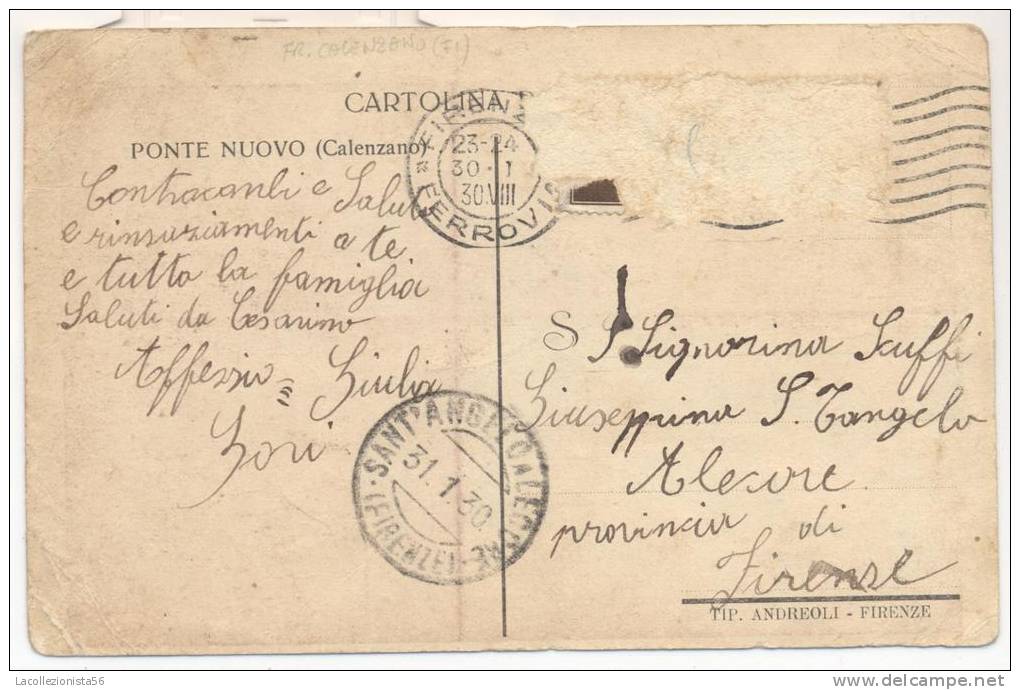 FR. CALENZANO (FI)
CARTOLINA
PONTE NUOVO (Calenzano)
FIRENZ
23-24
30·1
30.VIII
FERROVIE
Contracanbi e Salut
e rinsraziamenti a te
e tutto la famiglia
Saluti da Cesarino
Affezio = Giulia
Gori
SANT'ANGELO A LECORE
31.1.30.
(FIRENZE)
S Signorina Scuffi
Giuseppina S. Tangelo
Alecore
provincia di
Firense
TIP. ANDREOLI - FIRENZE
Lacollezionista56
delcampe.net